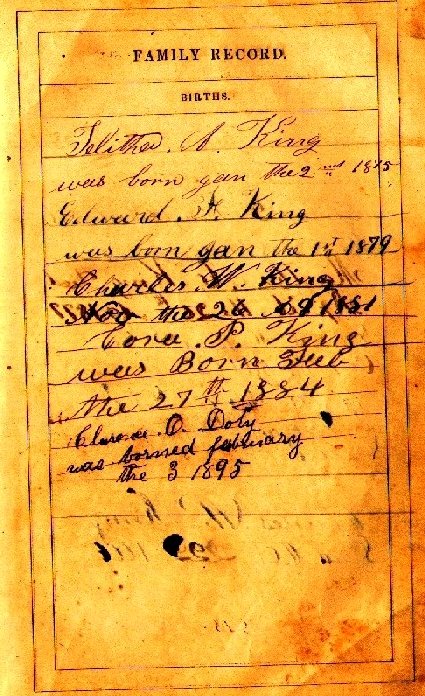 FAMILY RECORD.
BIRTHS.
Telitha A King
was born jan the 2nd 1875
Edward H King
was born jan the 1st 1879
Charles W. King
Nov the 1881
Cora P. King
was Born Feb
the 27th 1884
Clarence O. Doty
was borned febuary
the 3 1895